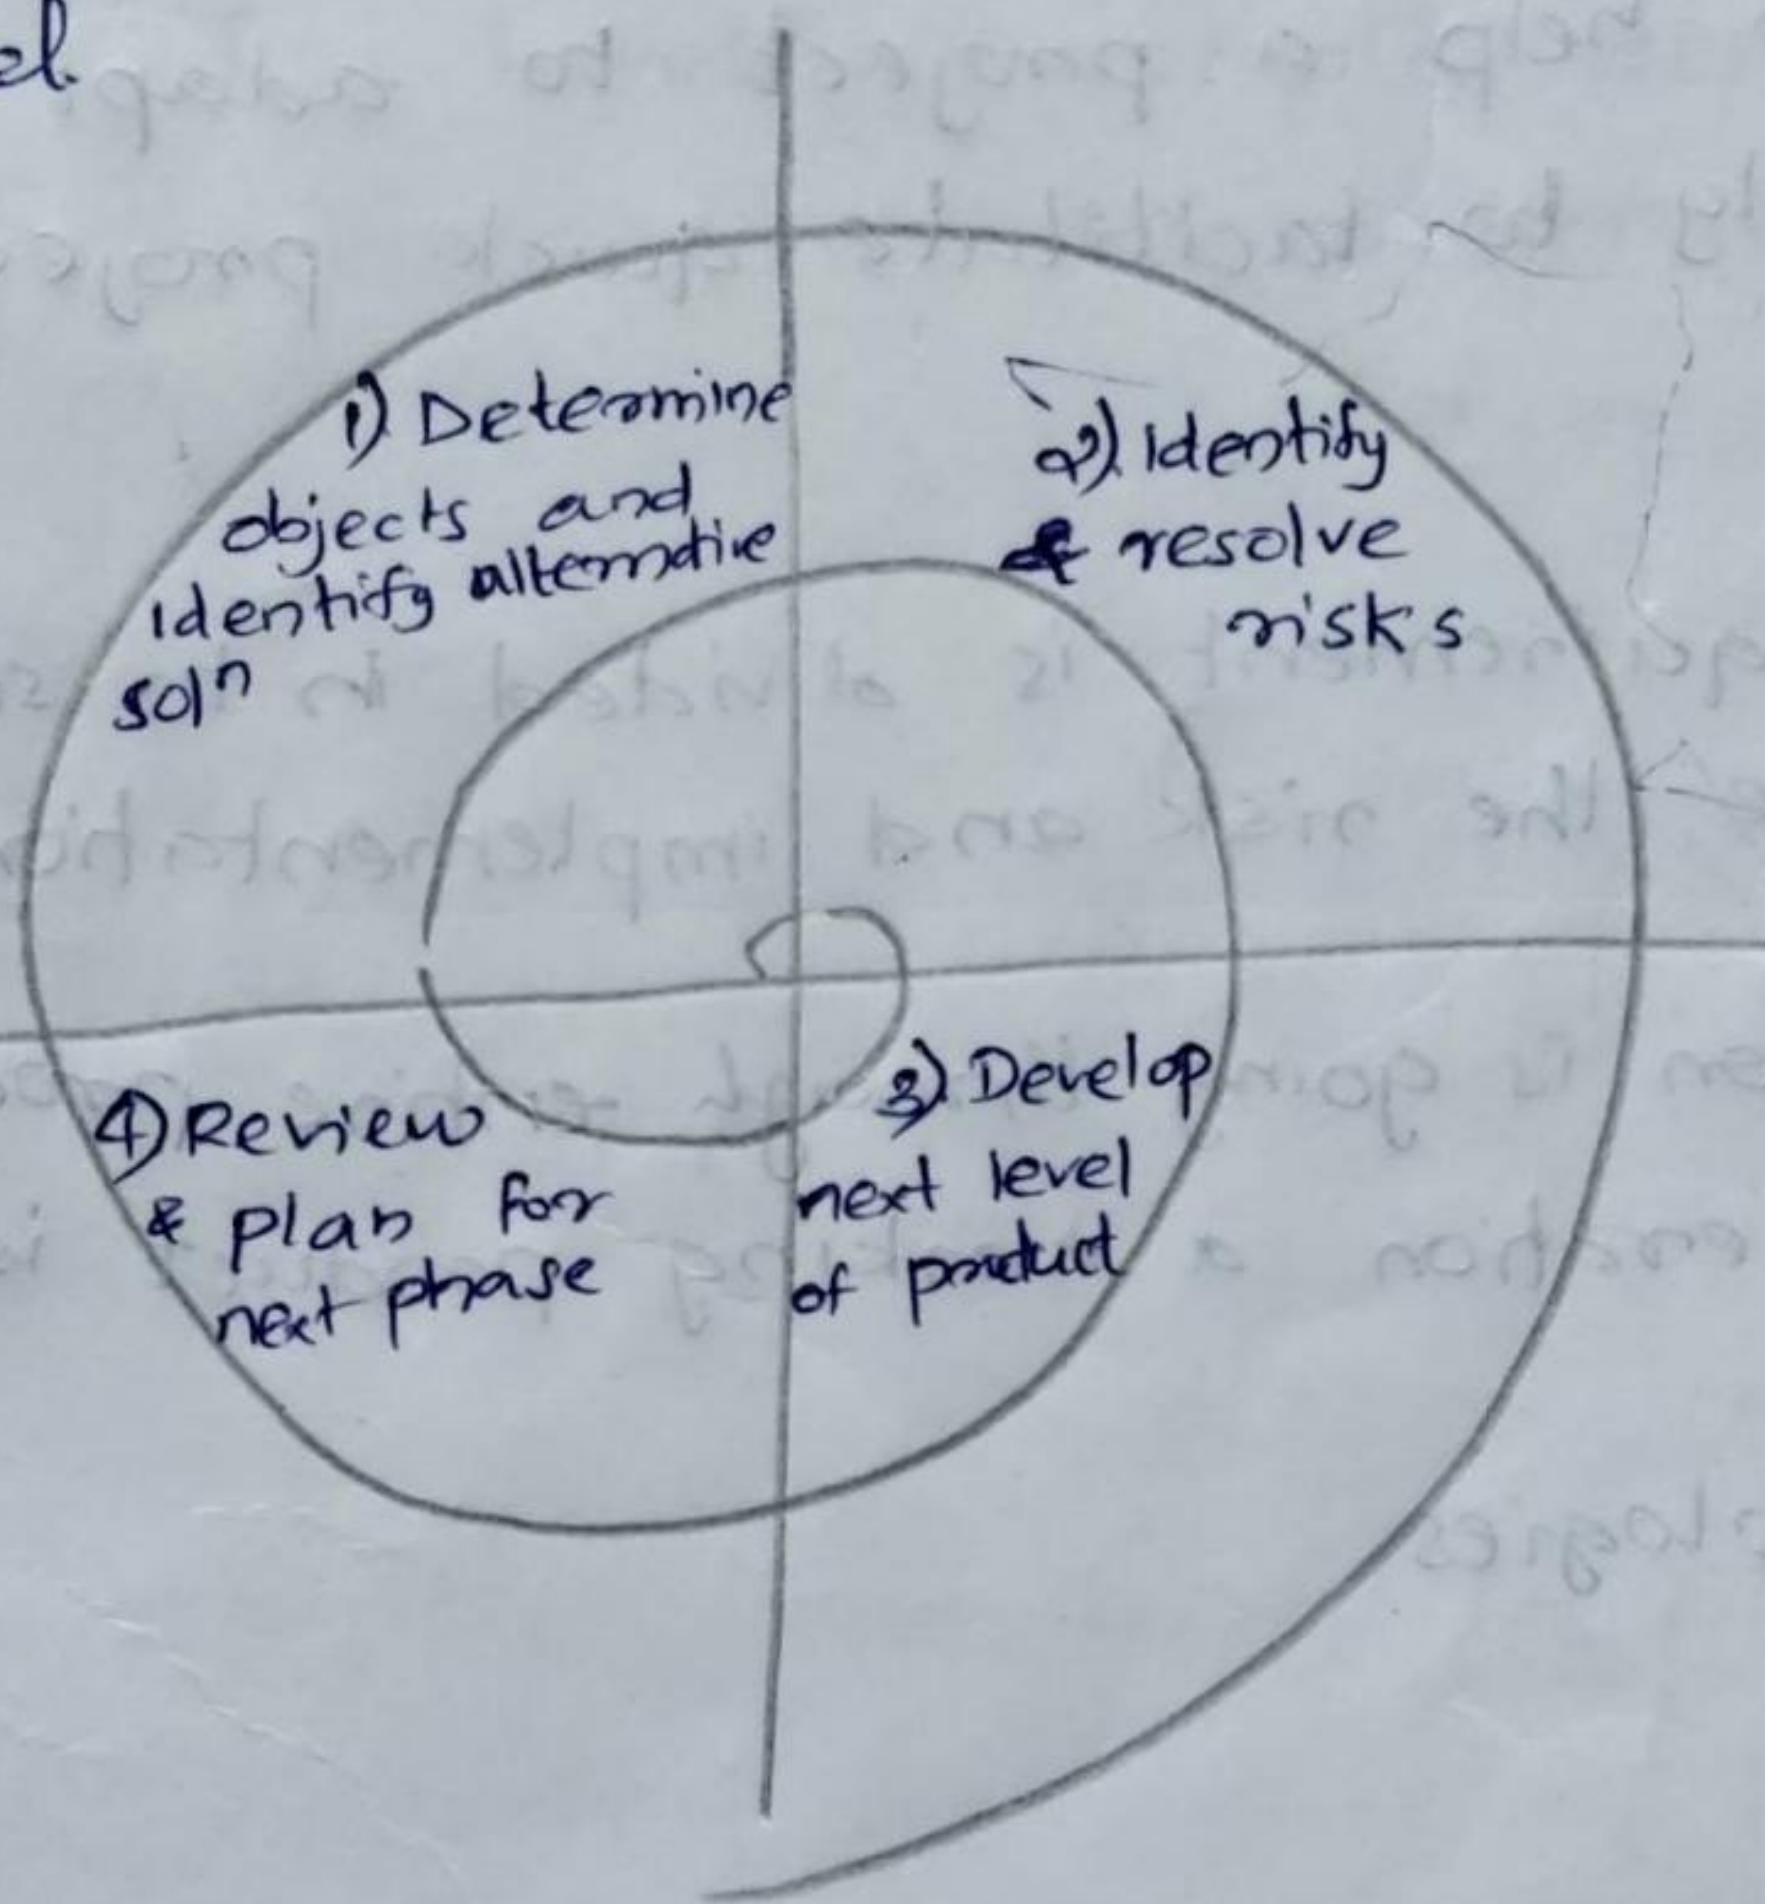 el.
1) Determine
objects and
identify alternative
solⁿ
2) Identify
& resolve
risks
3) Develop
next level
of product
4) Review
& plan for
next phase